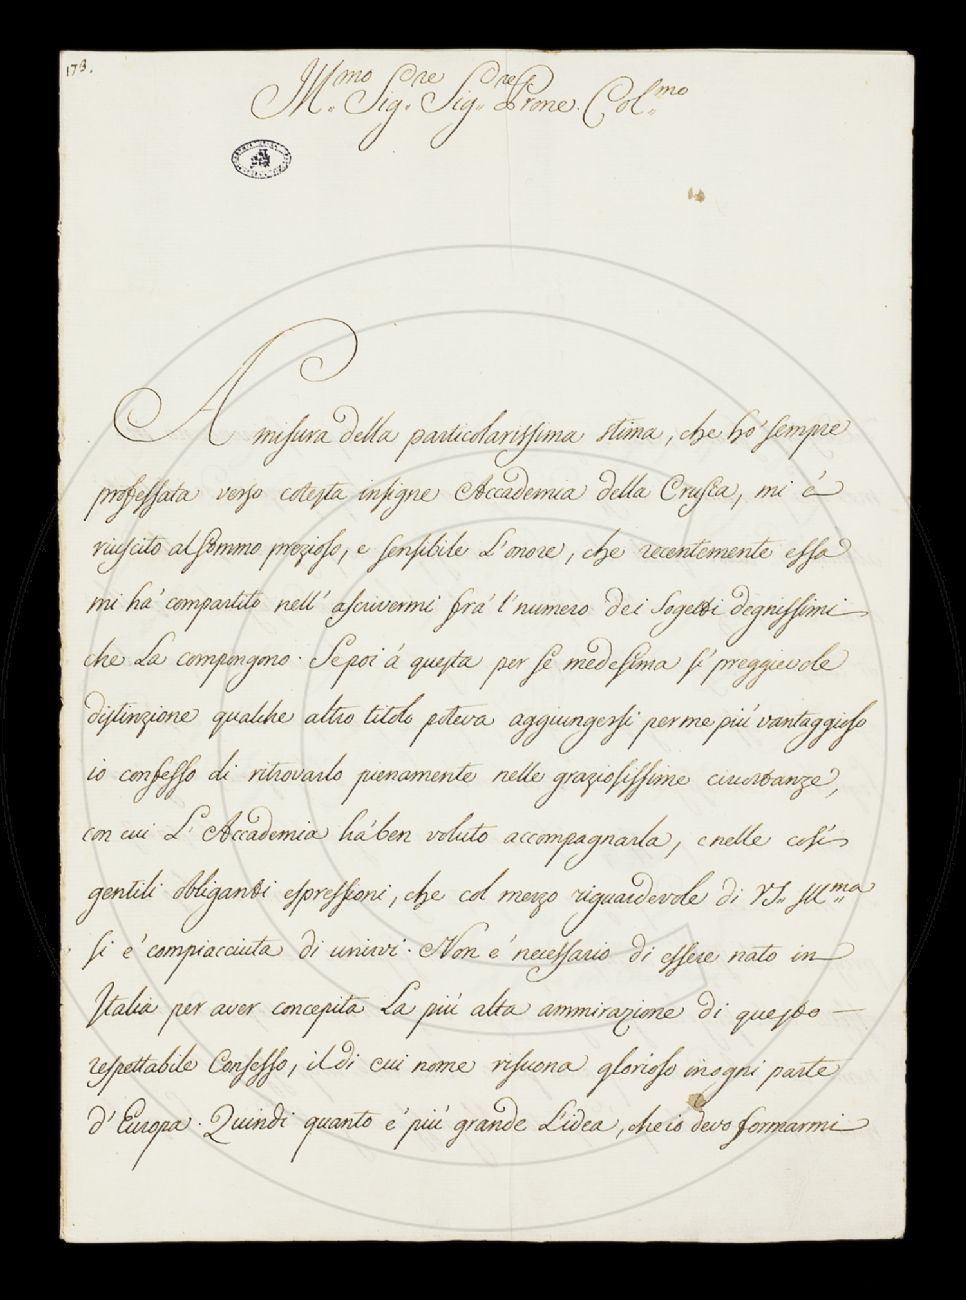 173.
Ill.mo Sig.re Sig.re Prone. Col.mo
A misura della particolarissima stima, che hò sempre
professata verso cotesta insigne Accademia della Crusca, mi è
riuscito al sommo prezioso, e sensibile L'onore, che recentemente essa
mi hà compartito nell'ascrivermi frà l'numero dei Sogetti degnissimi
che La compongono. Se poi á questa per se medesima sì preggievole
distinzione qualche altro titolo poteva aggiungersi per me più vantaggioso
io confesso di ritrovarlo pienamente nelle graziosissime circostanze,
con cui L'Accademia há ben voluto accompagnarla, e nelle così
gentili obliganti espressioni, che col mezzo riguardevole di VS. Ill.ma
si é compiacciuta di unirvi. Non é necessario di essere nato in
Italia per aver concepita La più alta ammirazione di questo
respettabile Consesso, il di cui nome risuona glorioso in ogni parte
d'Europa. Quindi quanto é più grande L'idea, che io devo formarmi